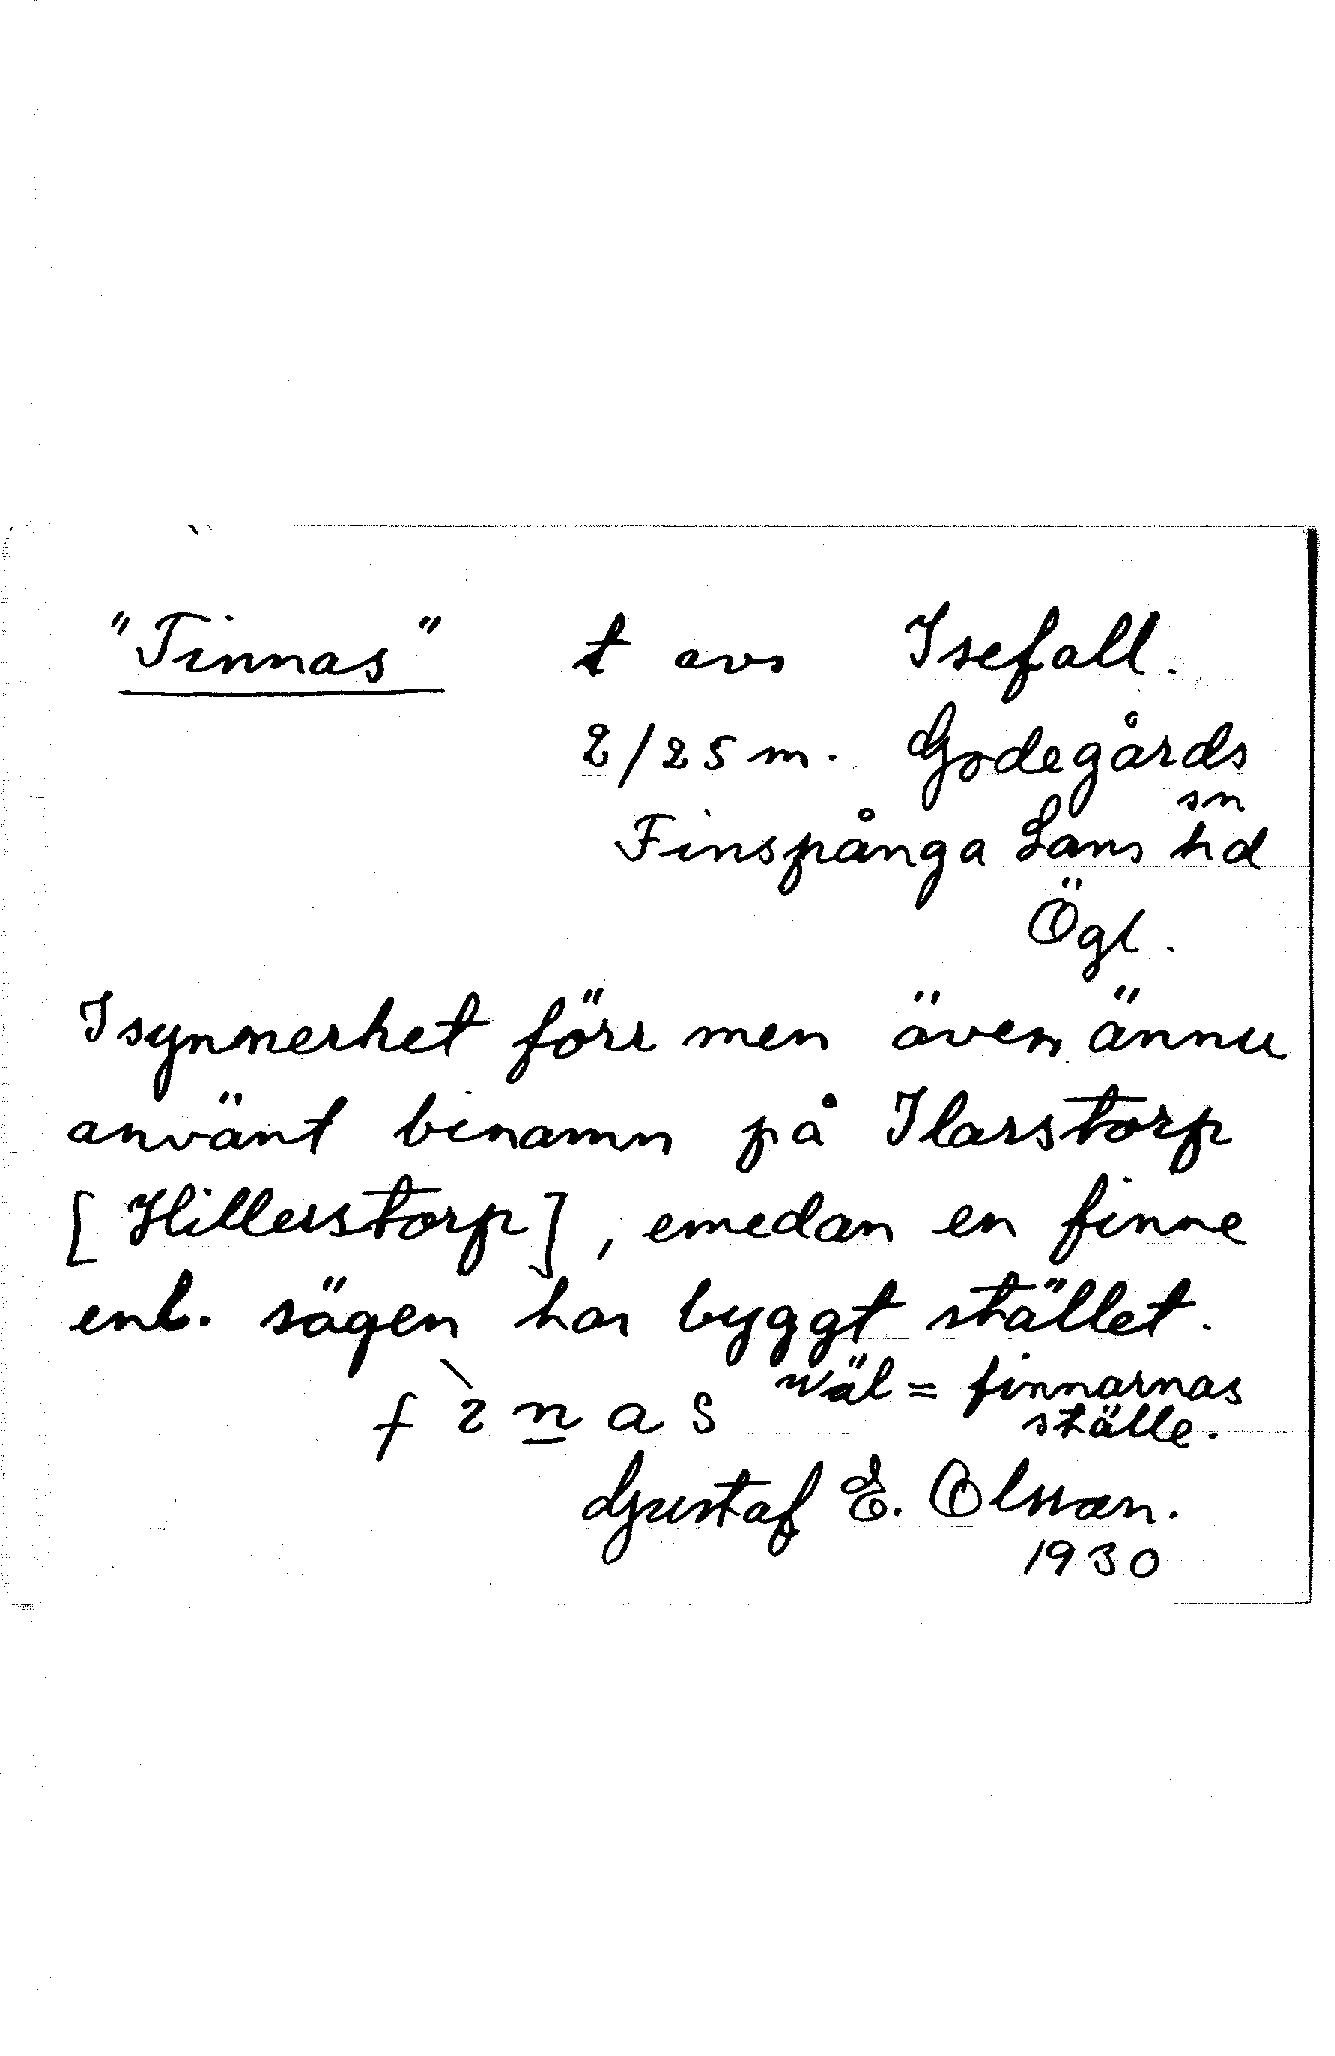 "Finnas" t avs Isefall.
2/25 m. Godegårds
sn
Finspånga Läns hd
Ögl.
Isynnerhet förr men även ännu
använt binamn på Ilarstorp
[Hillerstorp], emedan en finne
enl. sägen har byggt stället.
fìnas wäl = finnarnas
ställe.
Gustaf E. Olsson.
1930